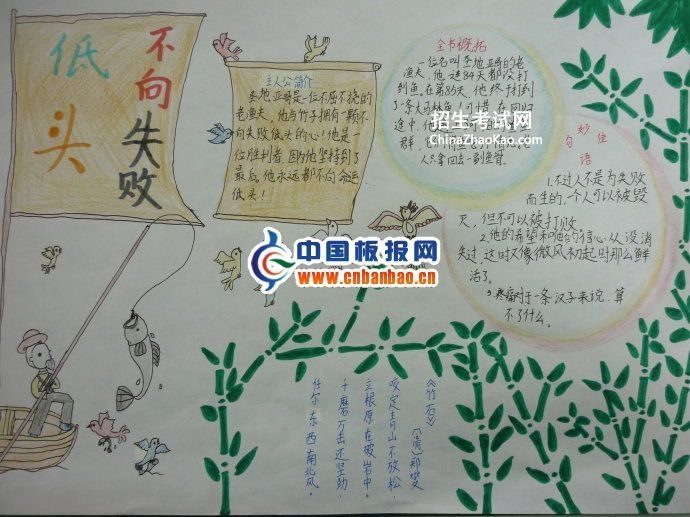 不向失败
低头
主人公简介
圣地亚哥是一位不屈不挠的
老渔夫，他与竹子拥有一颗不
向失败低头的心！他是一
位胜利者，因为他坚持到了
最后，他永远都不向命运
低头！
全书概括
一位名叫圣地亚哥的老
渔夫，他连84天都没打
到鱼，在第85天，他终于打到
了一条大马林鱼！可惜，在回归
途中，他
群，
人只拿回去一副鱼骨。
招生考试网
ChinaZhaoKao.com
妙语佳句
1.不过人不是为失败
而生的，一个人可以被毁
灭，但不可以被打败。
2.他的希望和他的信心从没消
失过，这时又像微风初起时那么鲜
活了。
3.疼痛对于一条汉子来说，算
不了什么。
中国板报网
www.cnbanbao.cn
《竹石》
（清）郑燮
咬定青山不放松，
立根原在破岩中。
千磨万击还坚劲，
任尔东西南北风。